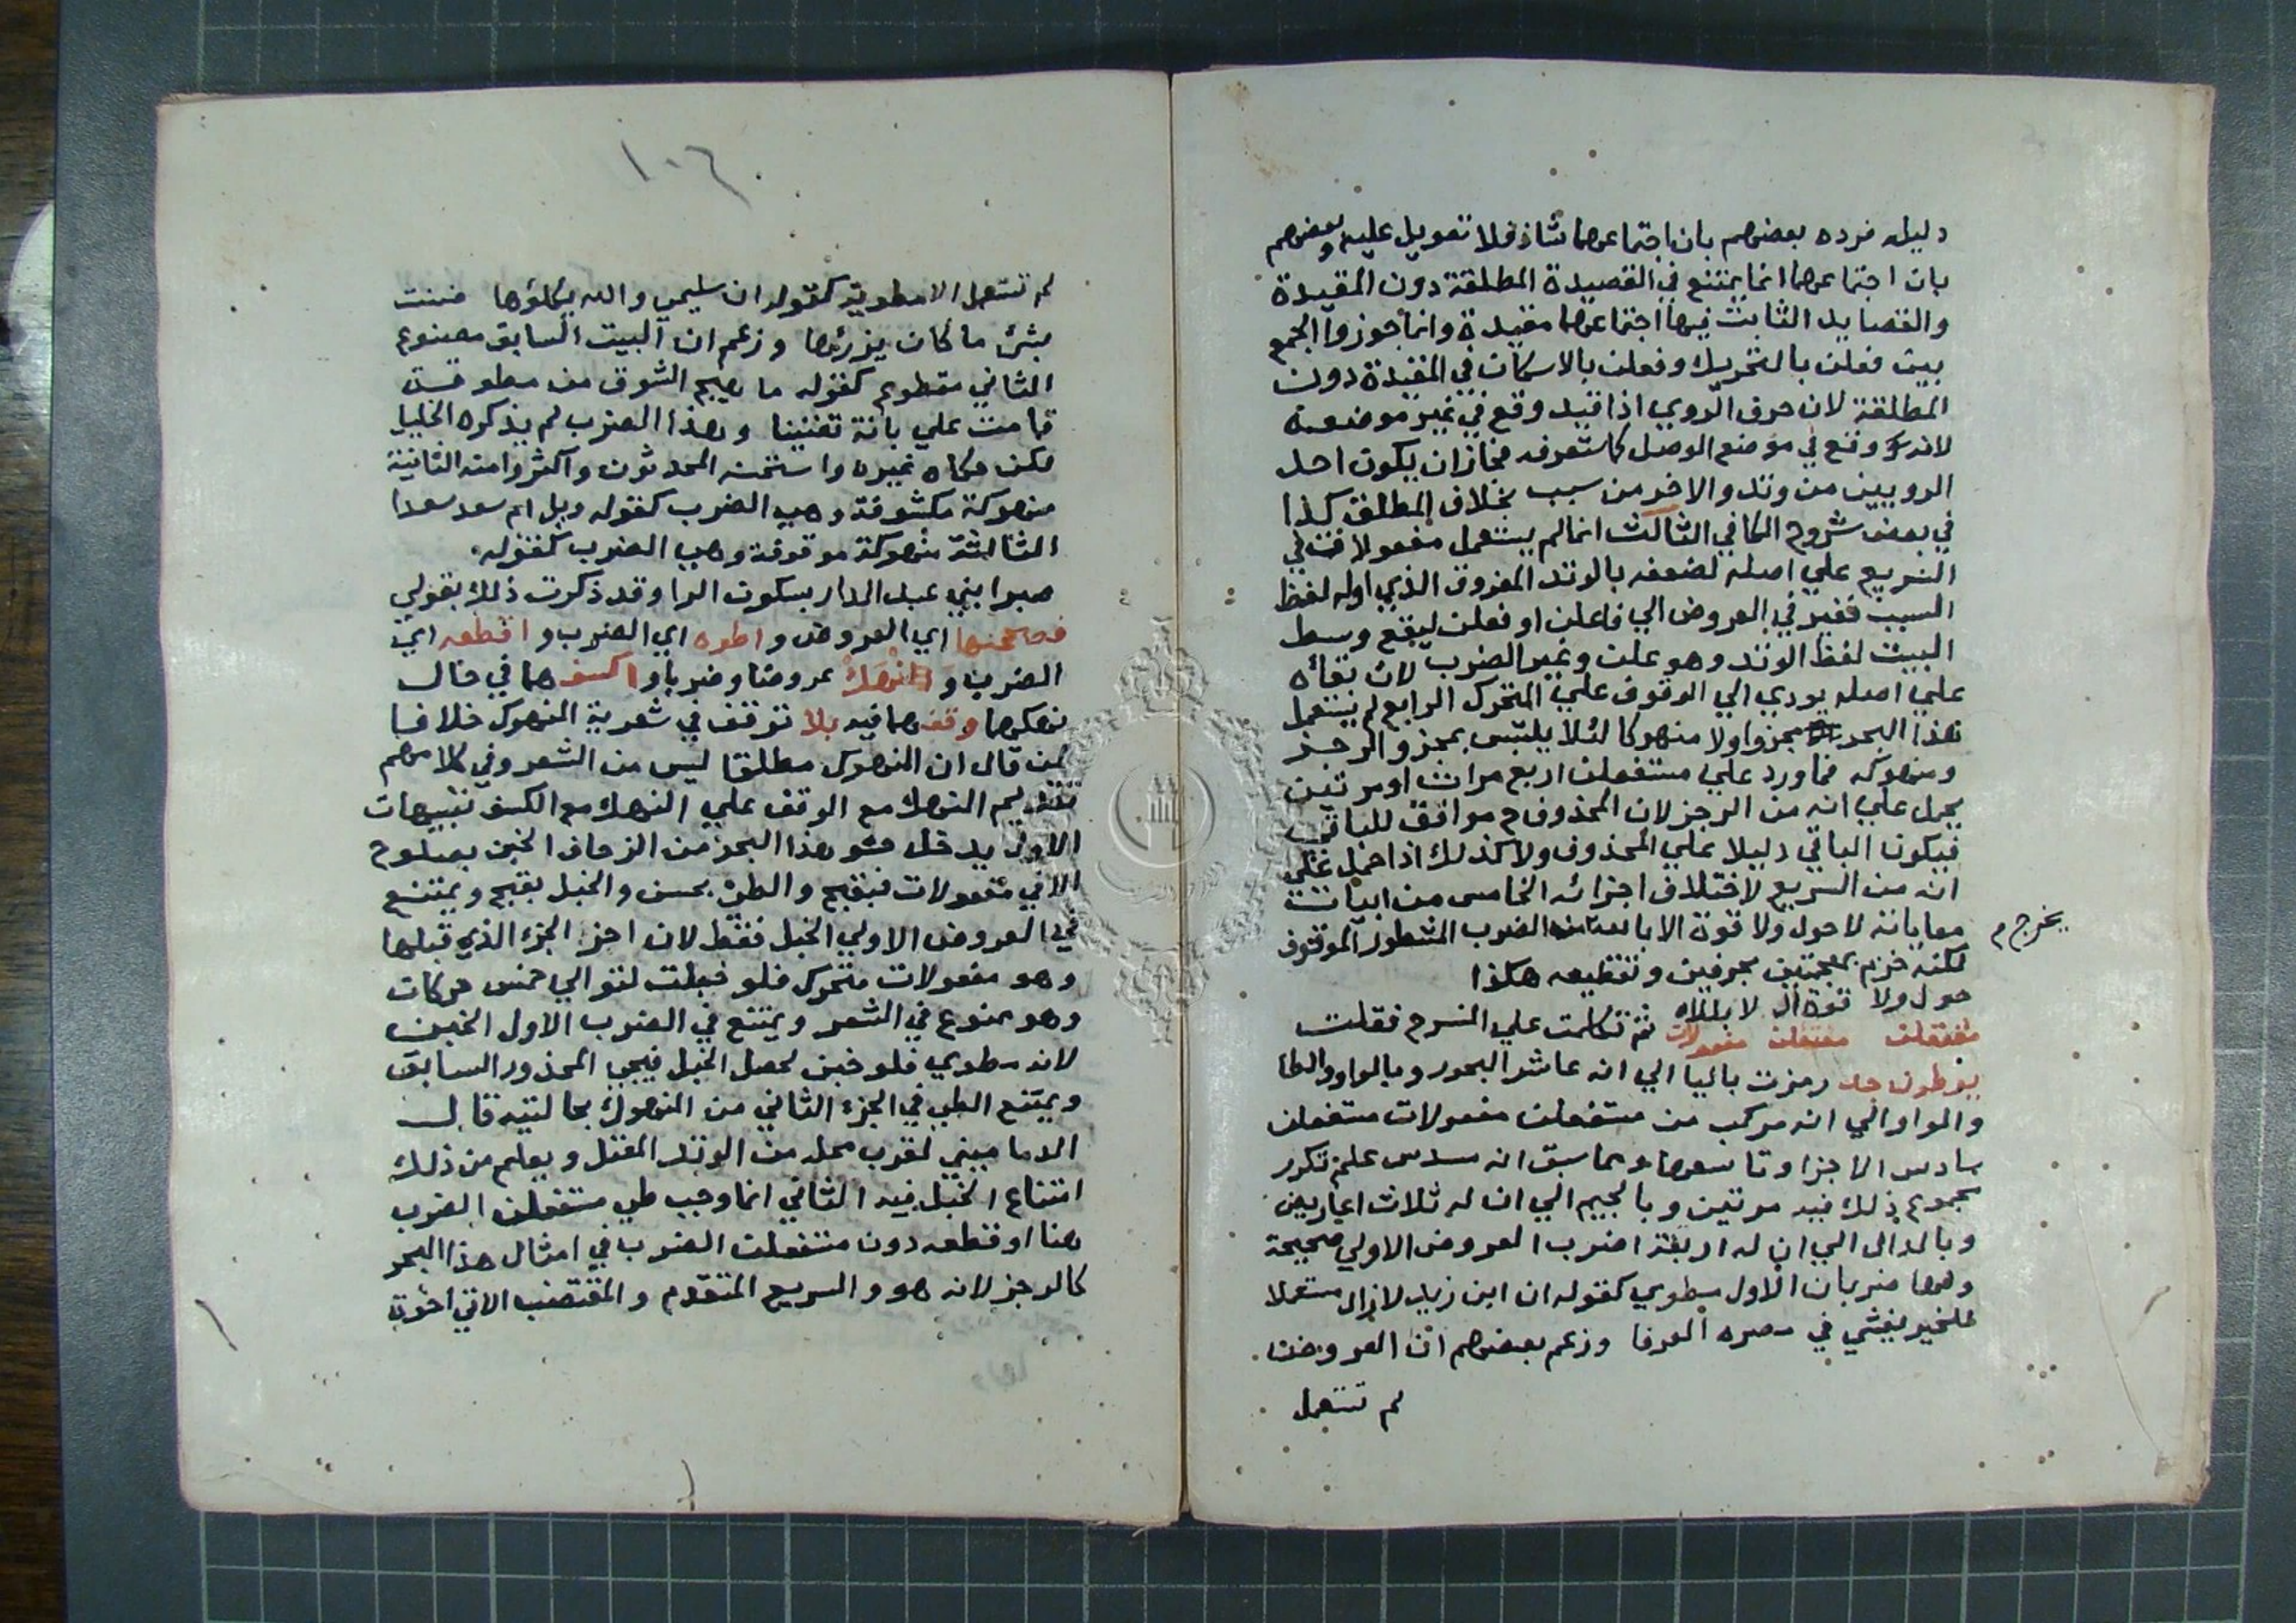 دليله فرده بعضهم بان اجتماعهما شاذ فلا تعويل عليه وبعضهم
بان اجتماعهما انما يمتنع في القصيدة المطلقة دون المقيدة
والقصايد الثابت فيها اجتماعهما مقيدة وانما جوزوا الجمع
بين فعلن بالتحريك وفعلن بالاسكان في المقيدة دون
المطلقة لان حرف الروي اذا قيد وقع في غير موضعه
لانه وقع في موضع الوصل كما ستعرفه فجاز ان يكون احد
الرويين من وتد والاخر من سبب بخلاف المطلق كذا
في بعض شروح الكافي الثالث انما لم يستعمل مفعولات في
السريع علي اصله لضعفه بالوتد المفروق الذي اوله لفظ
السبب فغير في العروض الي فاعلن او فعلن ليقع وسط
البيت لفظ الوتد وهو علن وغير الضرب لان بقاه
علي اصله يودي الي الوقوف علي المتحرك الرابع لم يستعمل
هذا البحر مجزوا ولا منهوكا لئلا يلتبس بمجزو الرجز
ومنهوكه فما ورد علي مستفعلن اربع مرات او مرتين
يحمل علي انه من الرجز لان المحذوف ح موافق للباقي
فيكون الباقي دليلا علي المحذوف ولا كذلك اذا حمل علي
انه من السريع لاختلاف اجزائه الخامس من ابيات
معاياته لا حول ولا قوة الا بالله من الضرب المشطور الموقوف
يخرج م
لكنه خزم بمعجمتين بحرفين وتقطيعه هكذا
حول ولا قوة ال لا بللاه ثم تكلمت علي المنسرح فقلت
مفتعلن مفتعلن مفعولات
يوطون جد رمزت باليا الي انه عاشر البحور وبالواو والطا
والواو الي انه مركب من مستفعلن مفعولات مستفعلن
سادس الاجزا وتاسعها ومما سبق انه مسدس علم تكرر
مجموع ذلك فيه مرتين وبالجيم الي ان له ثلاث اعاريض
وبالدال الي ان له اربعة اضرب العروض الاولي صحيحة
ولها ضربان الاول مطوي كقوله ان ابن زيد لا زال مستعملا
للخير يفشي في مصره العرفا وزعم بعضهم ان العروض
لم تستعمل
١٠٦
لم تستعمل الا مطوية كقوله ان سليمي والله يكلؤها ضنت
بشئ ما كان يزرئها وزعم ان البيت السابق مصنوع
الثاني مقطوع كقوله ما هيج الشوق من مطوقة
قامت علي بانة تغنينا وهذا الضرب لم يذكره الخليل
لكن حكاه غيره واستحسنه المحدثون واكثروا منه الثانية
منهوكة مكشوفة وهي الضرب كقوله ويل ام سعد سعدا
الثالثة منهوكة موقوفة وهي الضرب كقوله
صبرا بني عبد الدار بسكون الرا وقد ذكرت ذلك بقولي
فصححنها اي العروض واطوه اي الضرب واقطعه اي
الضرب وانهك عروضا وضربا واكسفهما في حال
نهكهما وقفهما فيه بلا توقف في شعرية المنهوك خلافا
لمن قال ان المنهوك مطلقا ليس من الشعر وفي كلامهم
تقديم النهك مع الوقف علي النهك مع الكسف تنبيهات
الاول يدخل حشو هذا البحر من الزحاف الخبن بصلوح
الا في مفعولات فبقبح والطي بحسن والخبل بقبح ويمتنع
في العروض الاولي الخبل فقط لان اخر الجزء الذي قبلها
وهو مفعولات متحرك فلو خبلت لتوالي خمس حركات
وهو ممنوع في الشعر ويمتنع في الضرب الاول الخبن
لانه مطوي فلو خبن لحصل الخبل فيجئ المحذور السابق
ويمتنع الطي في الجزء الثاني من المنهوك بحالتيه قال
الدماميني لقرب محله من الوتد المعتل ويعلم من ذلك
امتناع الخبل فيه الثاني انما وجب طي مستفعلن الضرب
هنا او قطعه دون مستفعلن الضرب في امثال هذا البحر
كالرجز لانه هو والسريع المتقدم والمقتضب الاتي اخوة